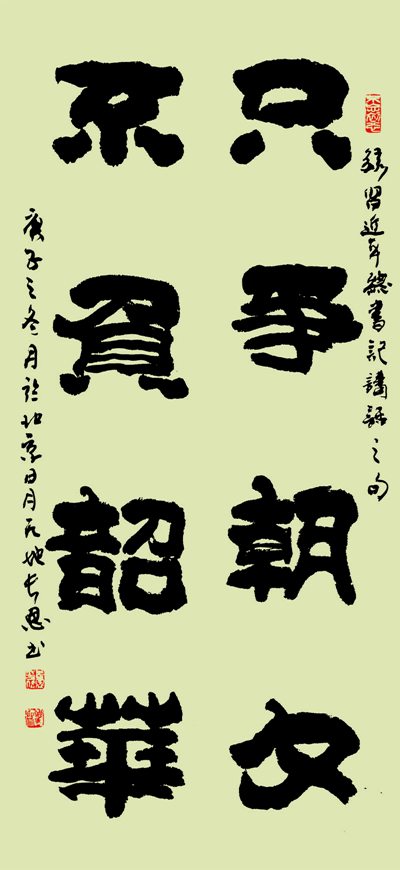 錄習近平總書記講話之句
只爭朝夕
不負韶華
庚子之冬月於北京日月天地长恩书